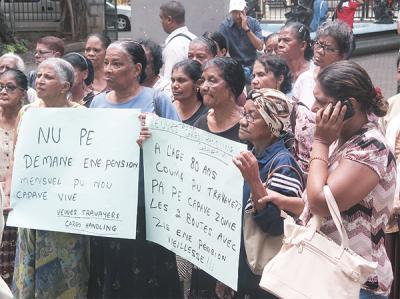 NU PE
DEMANE ENE PENSION
MENSUEL PU NOU
CAPAVE VIVE
VEUVES TRAVAYERS
CARGO HANDLING
VEUVES
A L'AGE 80 ANS
COUMA PU TRAVAYE?
PA PE CAPAVE ZOINE
LES 2 BOUTES AVEC
ZIS ENE PENSION
VIEILLESSE!!!